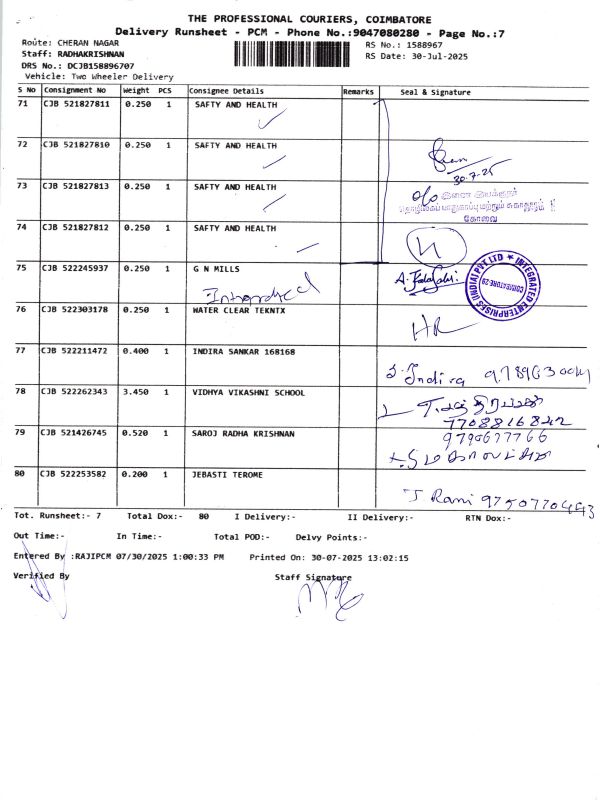 THE PROFESSIONAL COURIERS, COIMBATORE
Delivery Runsheet - PCM - Phone No.:9047080280 - Page No.:7
Route: CHERAN NAGAR
RS No.: 1588967
Staff: RADHAKRISHNAN
RS Date: 30-Jul-2025
DRS No.: DCJB158896707
Vehicle: Two Wheeler Delivery
S No Consignment No Weight PCS Consignee Details Remarks Seal & Signature
71 CJB 521827811 0.250 1 SAFTY AND HEALTH
72 CJB 521827810 0.250 1 SAFTY AND HEALTH
30-7-25
73 CJB 521827813 0.250 1 SAFTY AND HEALTH
o/o இணை இயக்குநர்
தொழிலகப் பாதுகாப்பு மற்றும் சுகாதாரம்
கோவை
74 CJB 521827812 0.250 1 SAFTY AND HEALTH
75 CJB 522245937 0.250 1 G N MILLS
Integrated
INTEGRATED ENTERPRISES (INDIA) PVT LTD
COIMBATORE-29
76 CJB 522303178 0.250 1 WATER CLEAR TEKNTX
HR
77 CJB 522211472 0.400 1 INDIRA SANKAR 168168
S. Indira
78 CJB 522262343 3.450 1 VIDHYA VIKASHNI SCHOOL
7708816842
79 CJB 521426745 0.520 1 SAROJ RADHA KRISHNAN
9790677766
80 CJB 522253582 0.200 1 JEBASTI TEROME
J Rami
Tot. Runsheet:- 7 Total Dox:- 80 I Delivery:- II Delivery:- RTN Dox:-
Out Time:- In Time:- Total POD:- Delvy Points:-
Entered By :RAJIPCM 07/30/2025 1:00:33 PM Printed On: 30-07-2025 13:02:15
Verified By Staff Signature